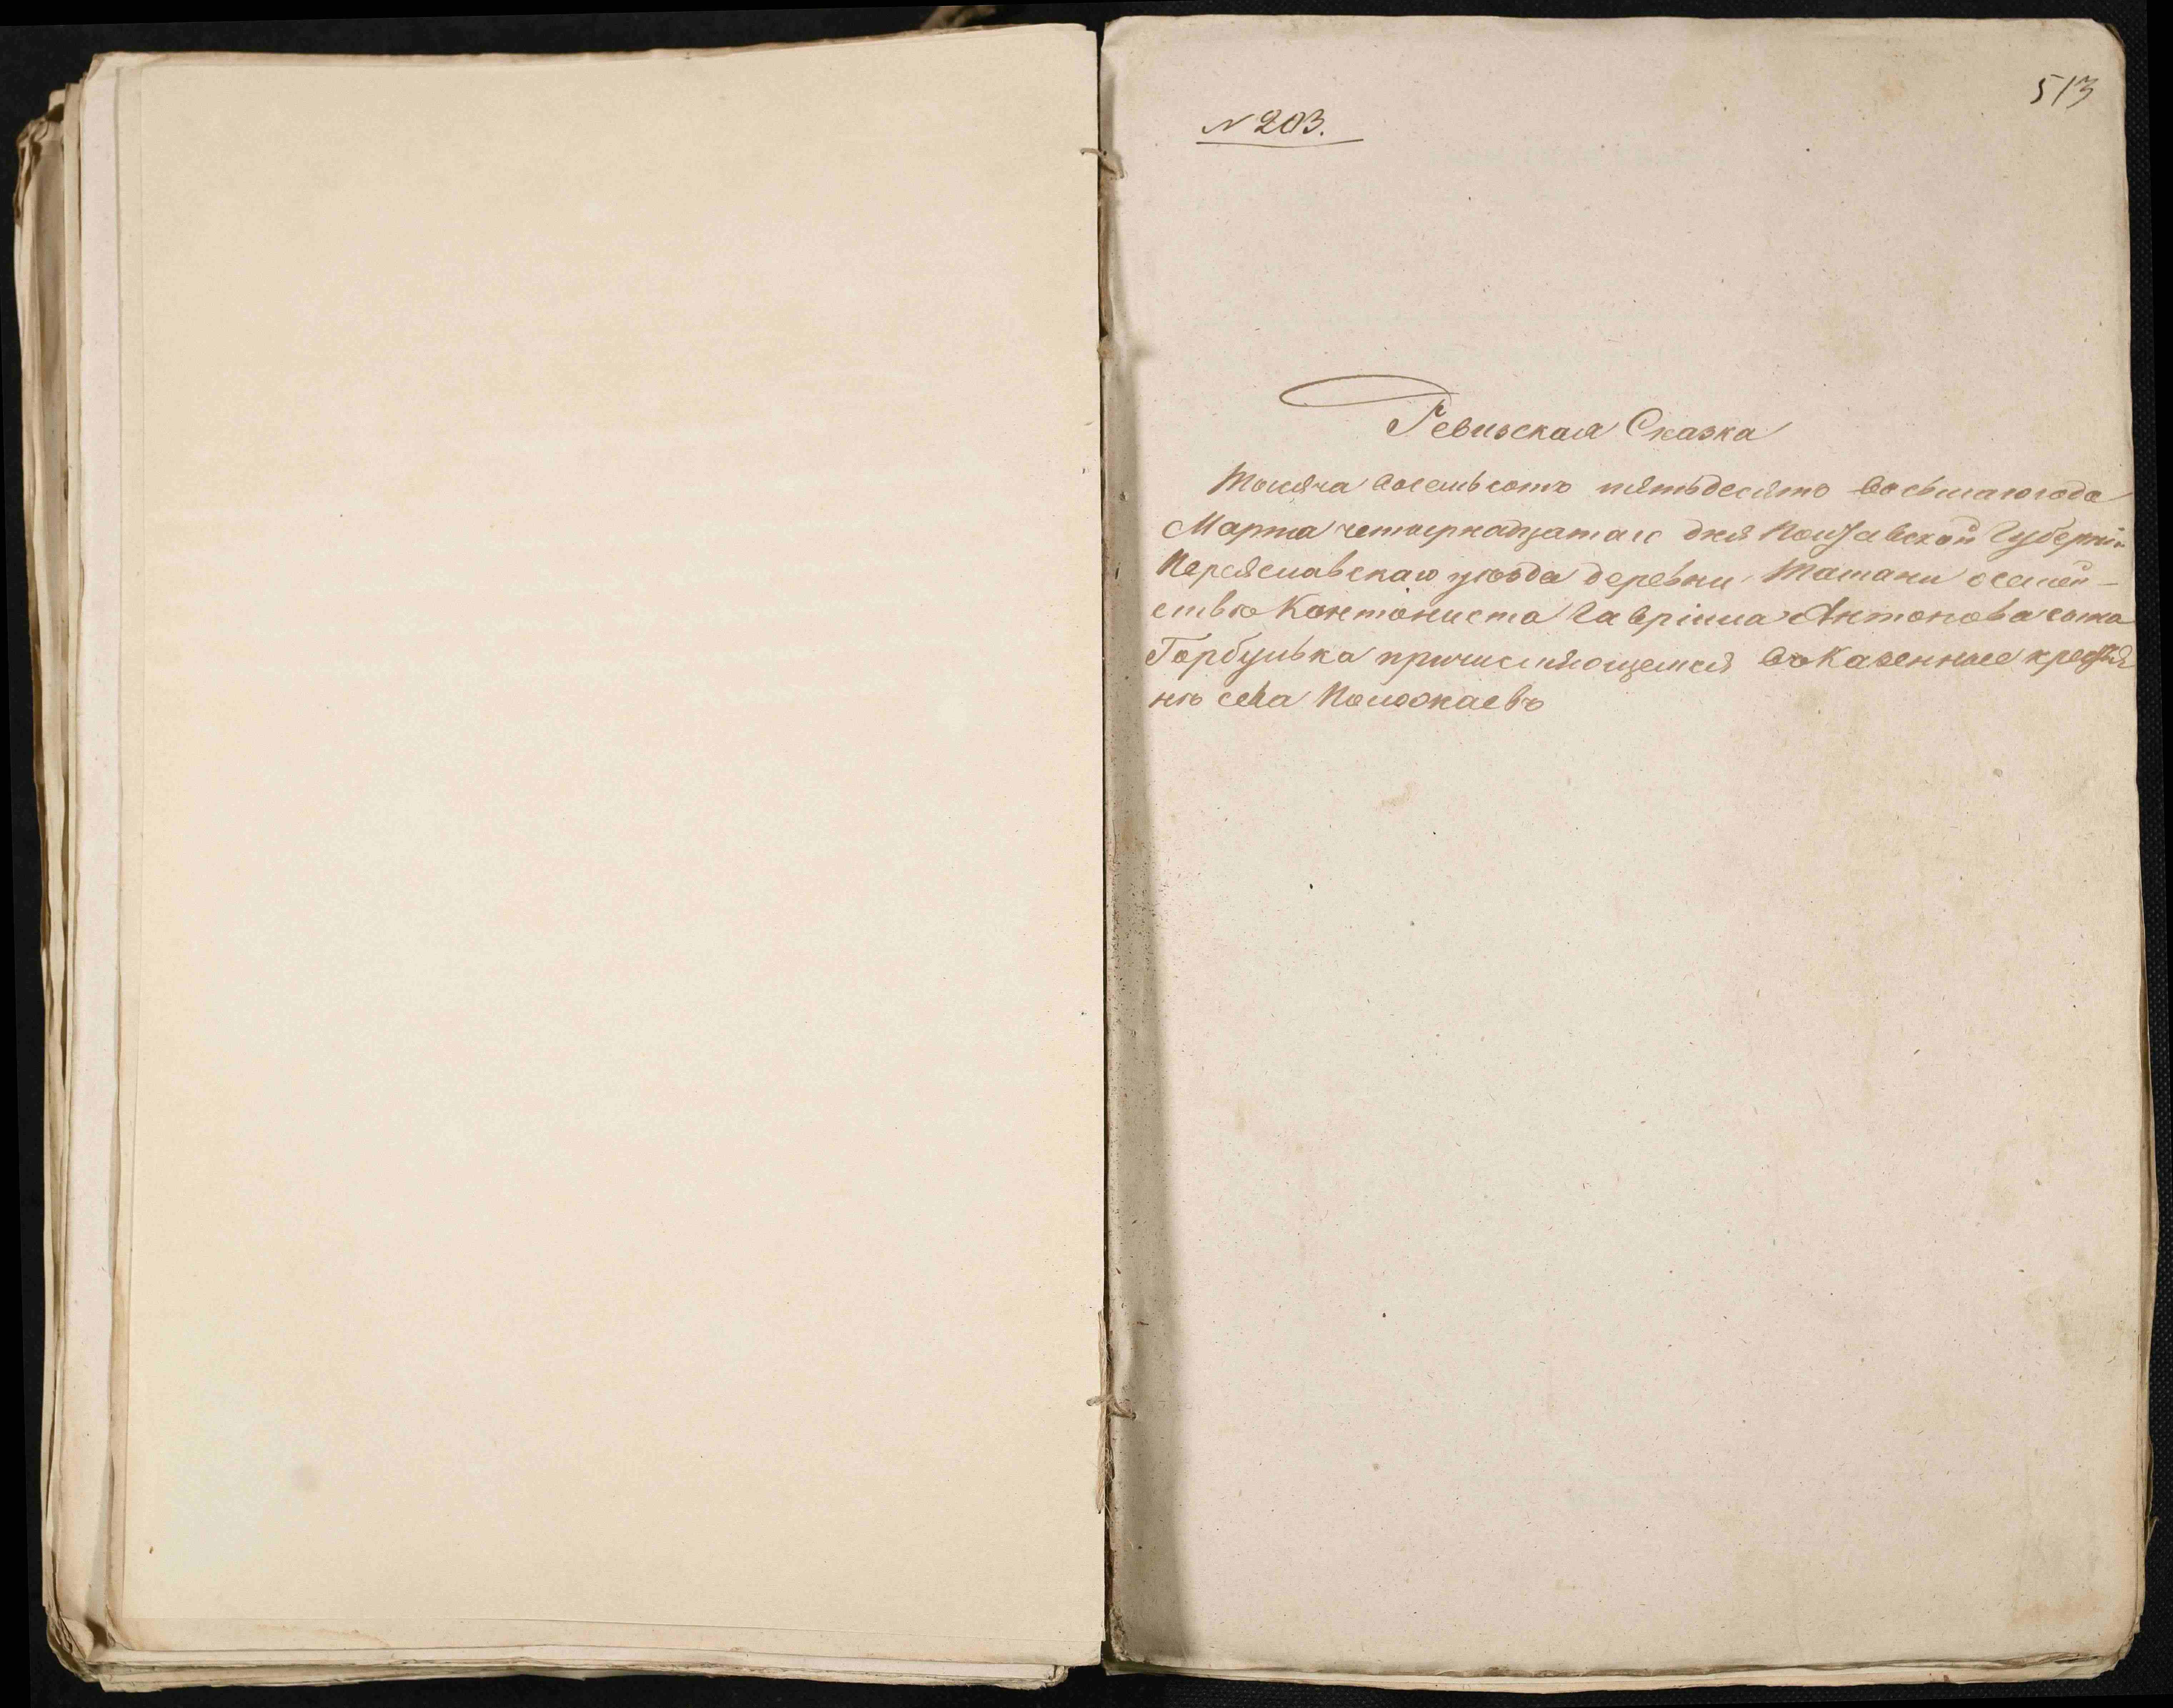 513
N 203.
Ревизская Сказка
Тысяча восемьсотъ пятьдесятъ восьмаго года
Марта четырнадцатаго дня Полтавской Губерніи
Переяславскаго уѣзда деревни Ташани о семей-
ствѣ Кантониста Гавріила Антонова сына
Горбулька причисляющемся въ Казенные крестья
нѣ села Положаевъ